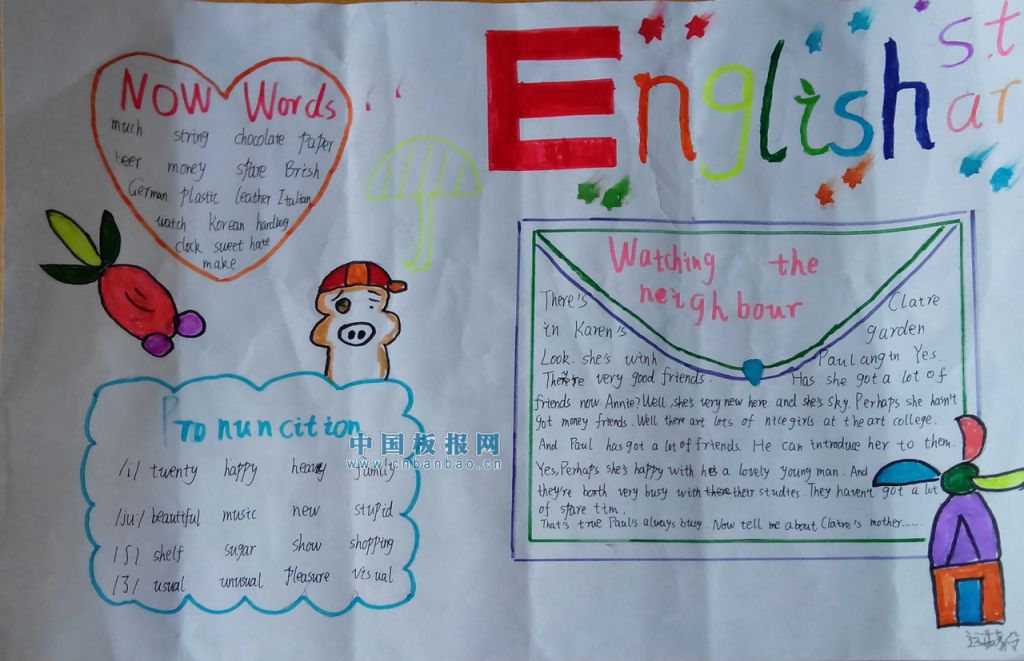 English
st
ar
Now Words
much string chocolate paper
beer money spare Brish
German plastic leather Italian
watch Korean hardbag
clock sweet hate
make
Watching the
neighbour
There's Claire
in Karen's garden
Look. she's winh Paul angin Yes.
There're very good friends. Has she got a lot of
friends now Annie? Well, she's very new here and she's sky. Perhaps she hasn't
got money friends. Well there art lots of nice girls at the art college.
And Paul has got a lot of friends. He can introduce her to them.
Yes, Perhaps she's happy with a lovely young man. And
they're borth very busy with their studies. They haven't got a lot
of spare tim.
That's true Paul's always busy. Now tell me about Claire's mother......
Pronuncition
中国板报网
www.cnbanbao.cn
/i/ twenty happy heavy family
/ju:/ beautiful music new stupid
/ʃ/ shelf sugar show shopping
/ʒ/ usual unusual pleasure visual